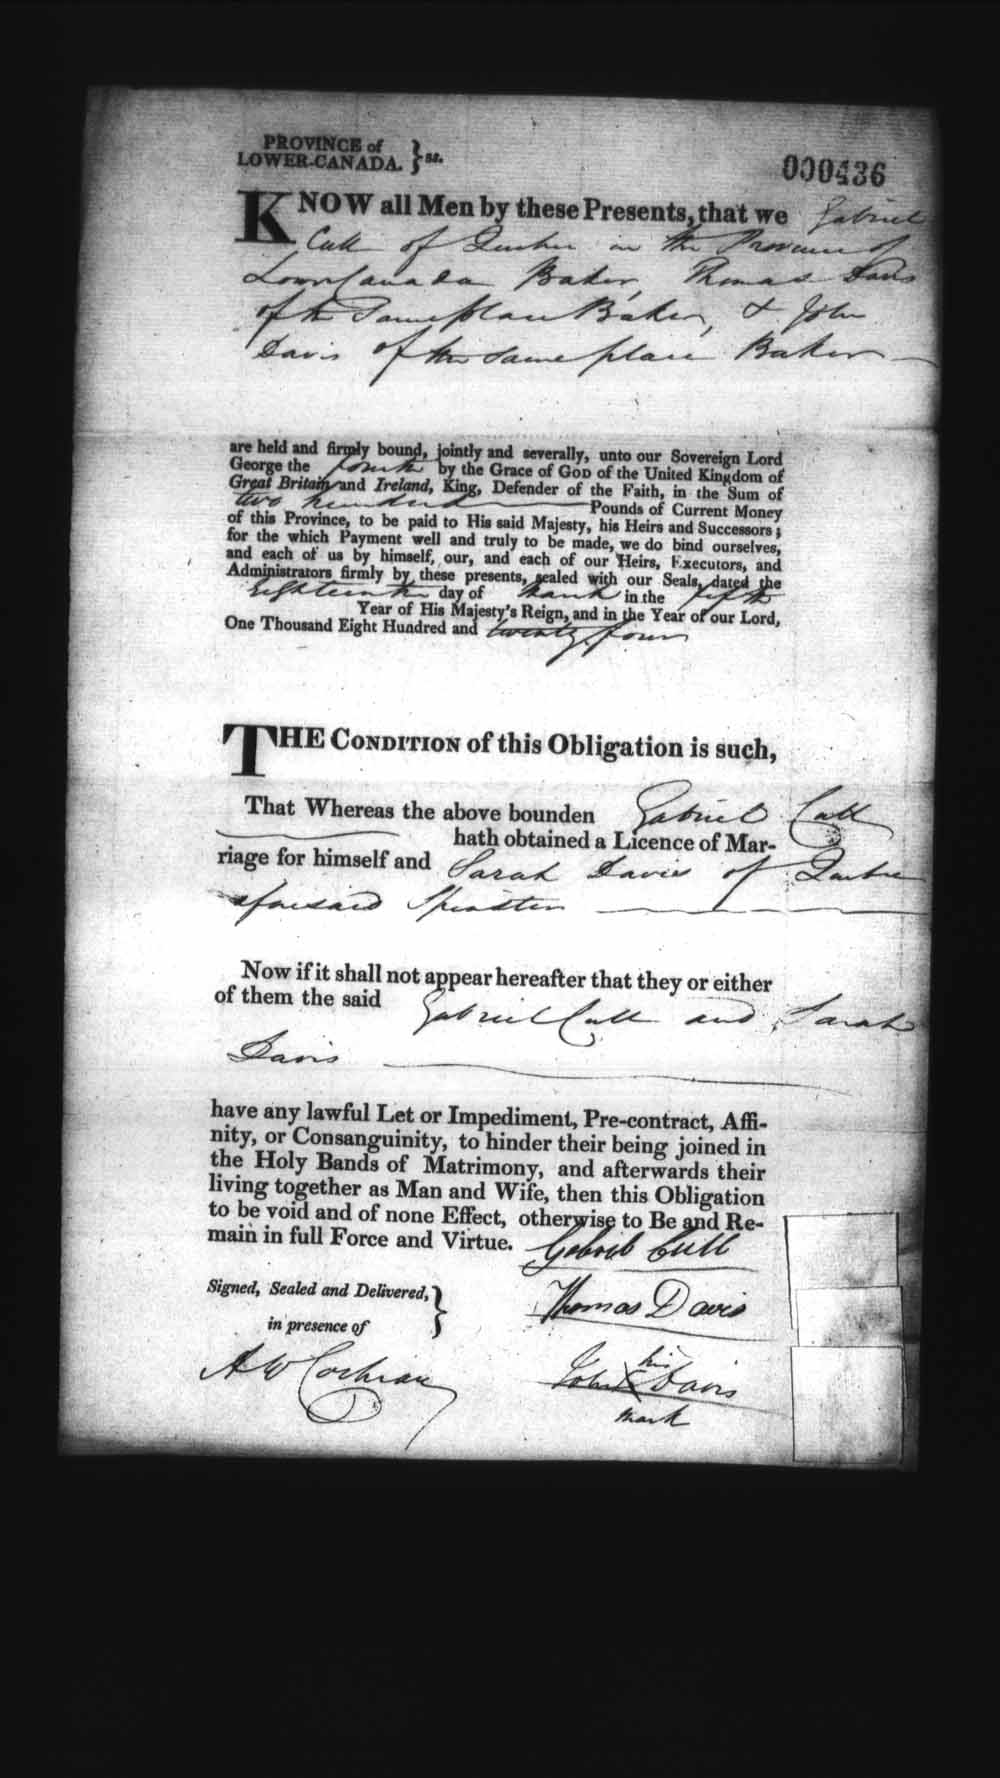 PROVINCE of
LOWER-CANADA. } ss.
000436
KNOW all Men by these Presents, that we Gabriel
Cull of Quebec in the Province of
Lower Canada Baker, Thomas Davis
of the Same place Baker, & John
Davis of the same place Baker
are held and firmly bound, jointly and severally, unto our Sovereign Lord
George the fourth by the Grace of GOD of the United Kingdom of
Great Britain and Ireland, King, Defender of the Faith, in the Sum of
two hundred Pounds of Current Money
of this Province, to be paid to His said Majesty, his Heirs and Successors;
for the which Payment well and truly to be made, we do bind ourselves,
and each of us by himself, our, and each of our Heirs, Executors, and
Administrators firmly by these presents, sealed with our Seals, dated the
Eighteenth day of March in the fifth
Year of His Majesty's Reign, and in the Year of our Lord,
One Thousand Eight Hundred and twenty four
THE CONDITION of this Obligation is such,
That Whereas the above bounden Gabriel Cull
hath obtained a Licence of Mar-
riage for himself and Sarah Davis of Quebec
aforesaid Spinster
Now if it shall not appear hereafter that they or either
of them the said Gabriel Cull and Sarah
Davis
have any lawful Let or Impediment, Pre-contract, Affi-
nity, or Consanguinity, to hinder their being joined in
the Holy Bands of Matrimony, and afterwards their
living together as Man and Wife, then this Obligation
to be void and of none Effect, otherwise to Be and Re-
main in full Force and Virtue. Gabriel Cull
Signed, Sealed and Delivered, } Thomas Davis
in presence of
A W Cochran John X his Davis
mark